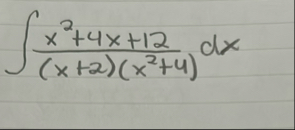 ∫ (x²+4x+12)/((x+2)(x²+4)) dx